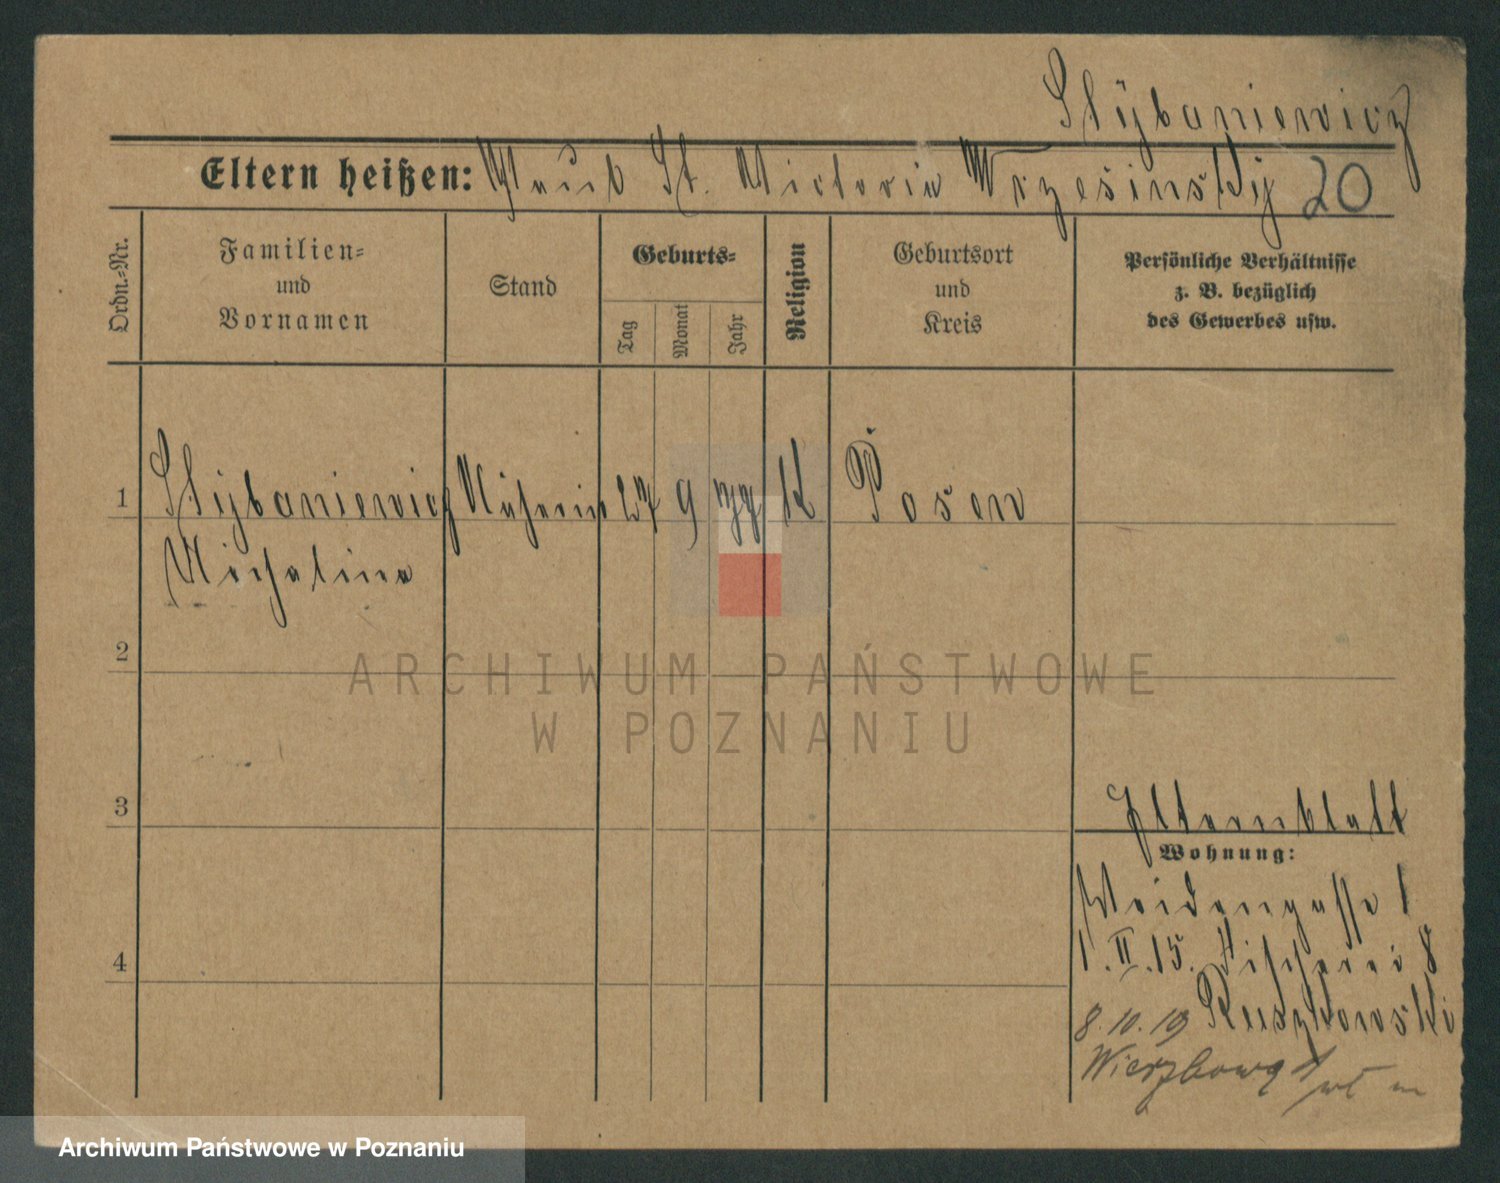 Stÿbaniewicz
Eltern heißen: St. Victoria Wrzesinskÿ 20
Ordn.-Nr.
Familien-
und
Vornamen
Stand
Geburts-
Tag
Monat
Jahr
Religion
Geburtsort
und
Kreis
Persönliche Verhältnisse
z. B. bezüglich
des Gewerbes usw.
1 Stÿbaniewicz Näherin 27 9 K Posen
Michalina
2
3
4
Elternblatt
Wohnung:
Weidengasse 1
1.II.15. Fischerei 8
8.10.19 Ruszkowski
Wierzbowa 1
ARCHIWUM PAŃSTWOWE
W POZNANIU
Archiwum Państwowe w Poznaniu